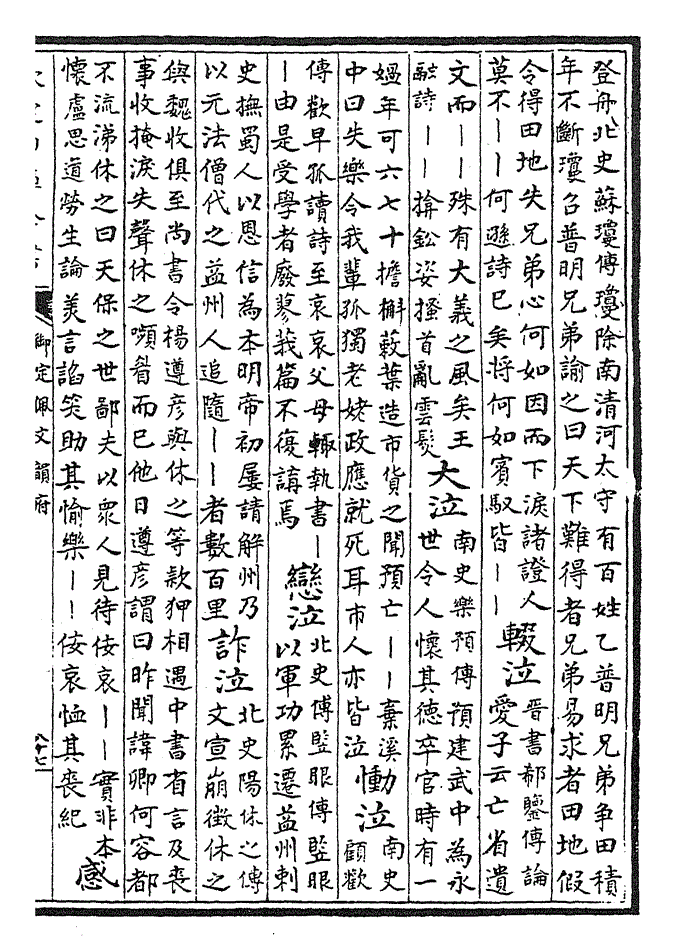 登舟北史蘇瓊傳瓊除南清河太守有百姓乙普明兄弟争田積
年不斷瓊召普明兄弟諭之曰天下難得者兄弟易求者田地假
令得田地失兄弟心何如因而下淚諸證人
莫不丨丨何遜詩已矣將何如賓馭皆丨丨
輟泣
晉書郗鑒傳論
愛子云亡省遺
文而丨丨殊有大義之風矣王
融詩丨丨揜鉛姿搔首亂雲髮
大泣
南史樂預傳預建武中為永
世令人懷其德卒官時有一
媼年可六七十擔槲蔌葉造市貨之聞預亡丨丨棄溪
中曰失樂令我輩孤獨老姥政應就死耳市人亦皆泣
慟泣
南史
顧歡
傳歡早孤讀詩至哀哀父母輒執書丨
丨由是受學者廢蓼莪篇不復講焉
戀泣
北史傅豎眼傳豎眼
以軍功累遷益州刺
史撫蜀人以恩信為本明帝初屢請解州乃
以元法僧代之益州人追隨丨丨者數百里
詐泣
北史陽休之傳
文宣崩徵休之
與魏收俱至尚書令楊遵彦與休之等款狎相遇中書省言及喪
事收掩淚失聲休之嚬眉而已他日遵彦謂曰昨聞諱卿何容都
不流涕休之曰天保之世鄙夫以衆人見待佞哀丨丨實非本
懷盧思道勞生論羙言諂笑助其愉樂丨丨佞哀恤其喪紀
感
御定佩文韻府